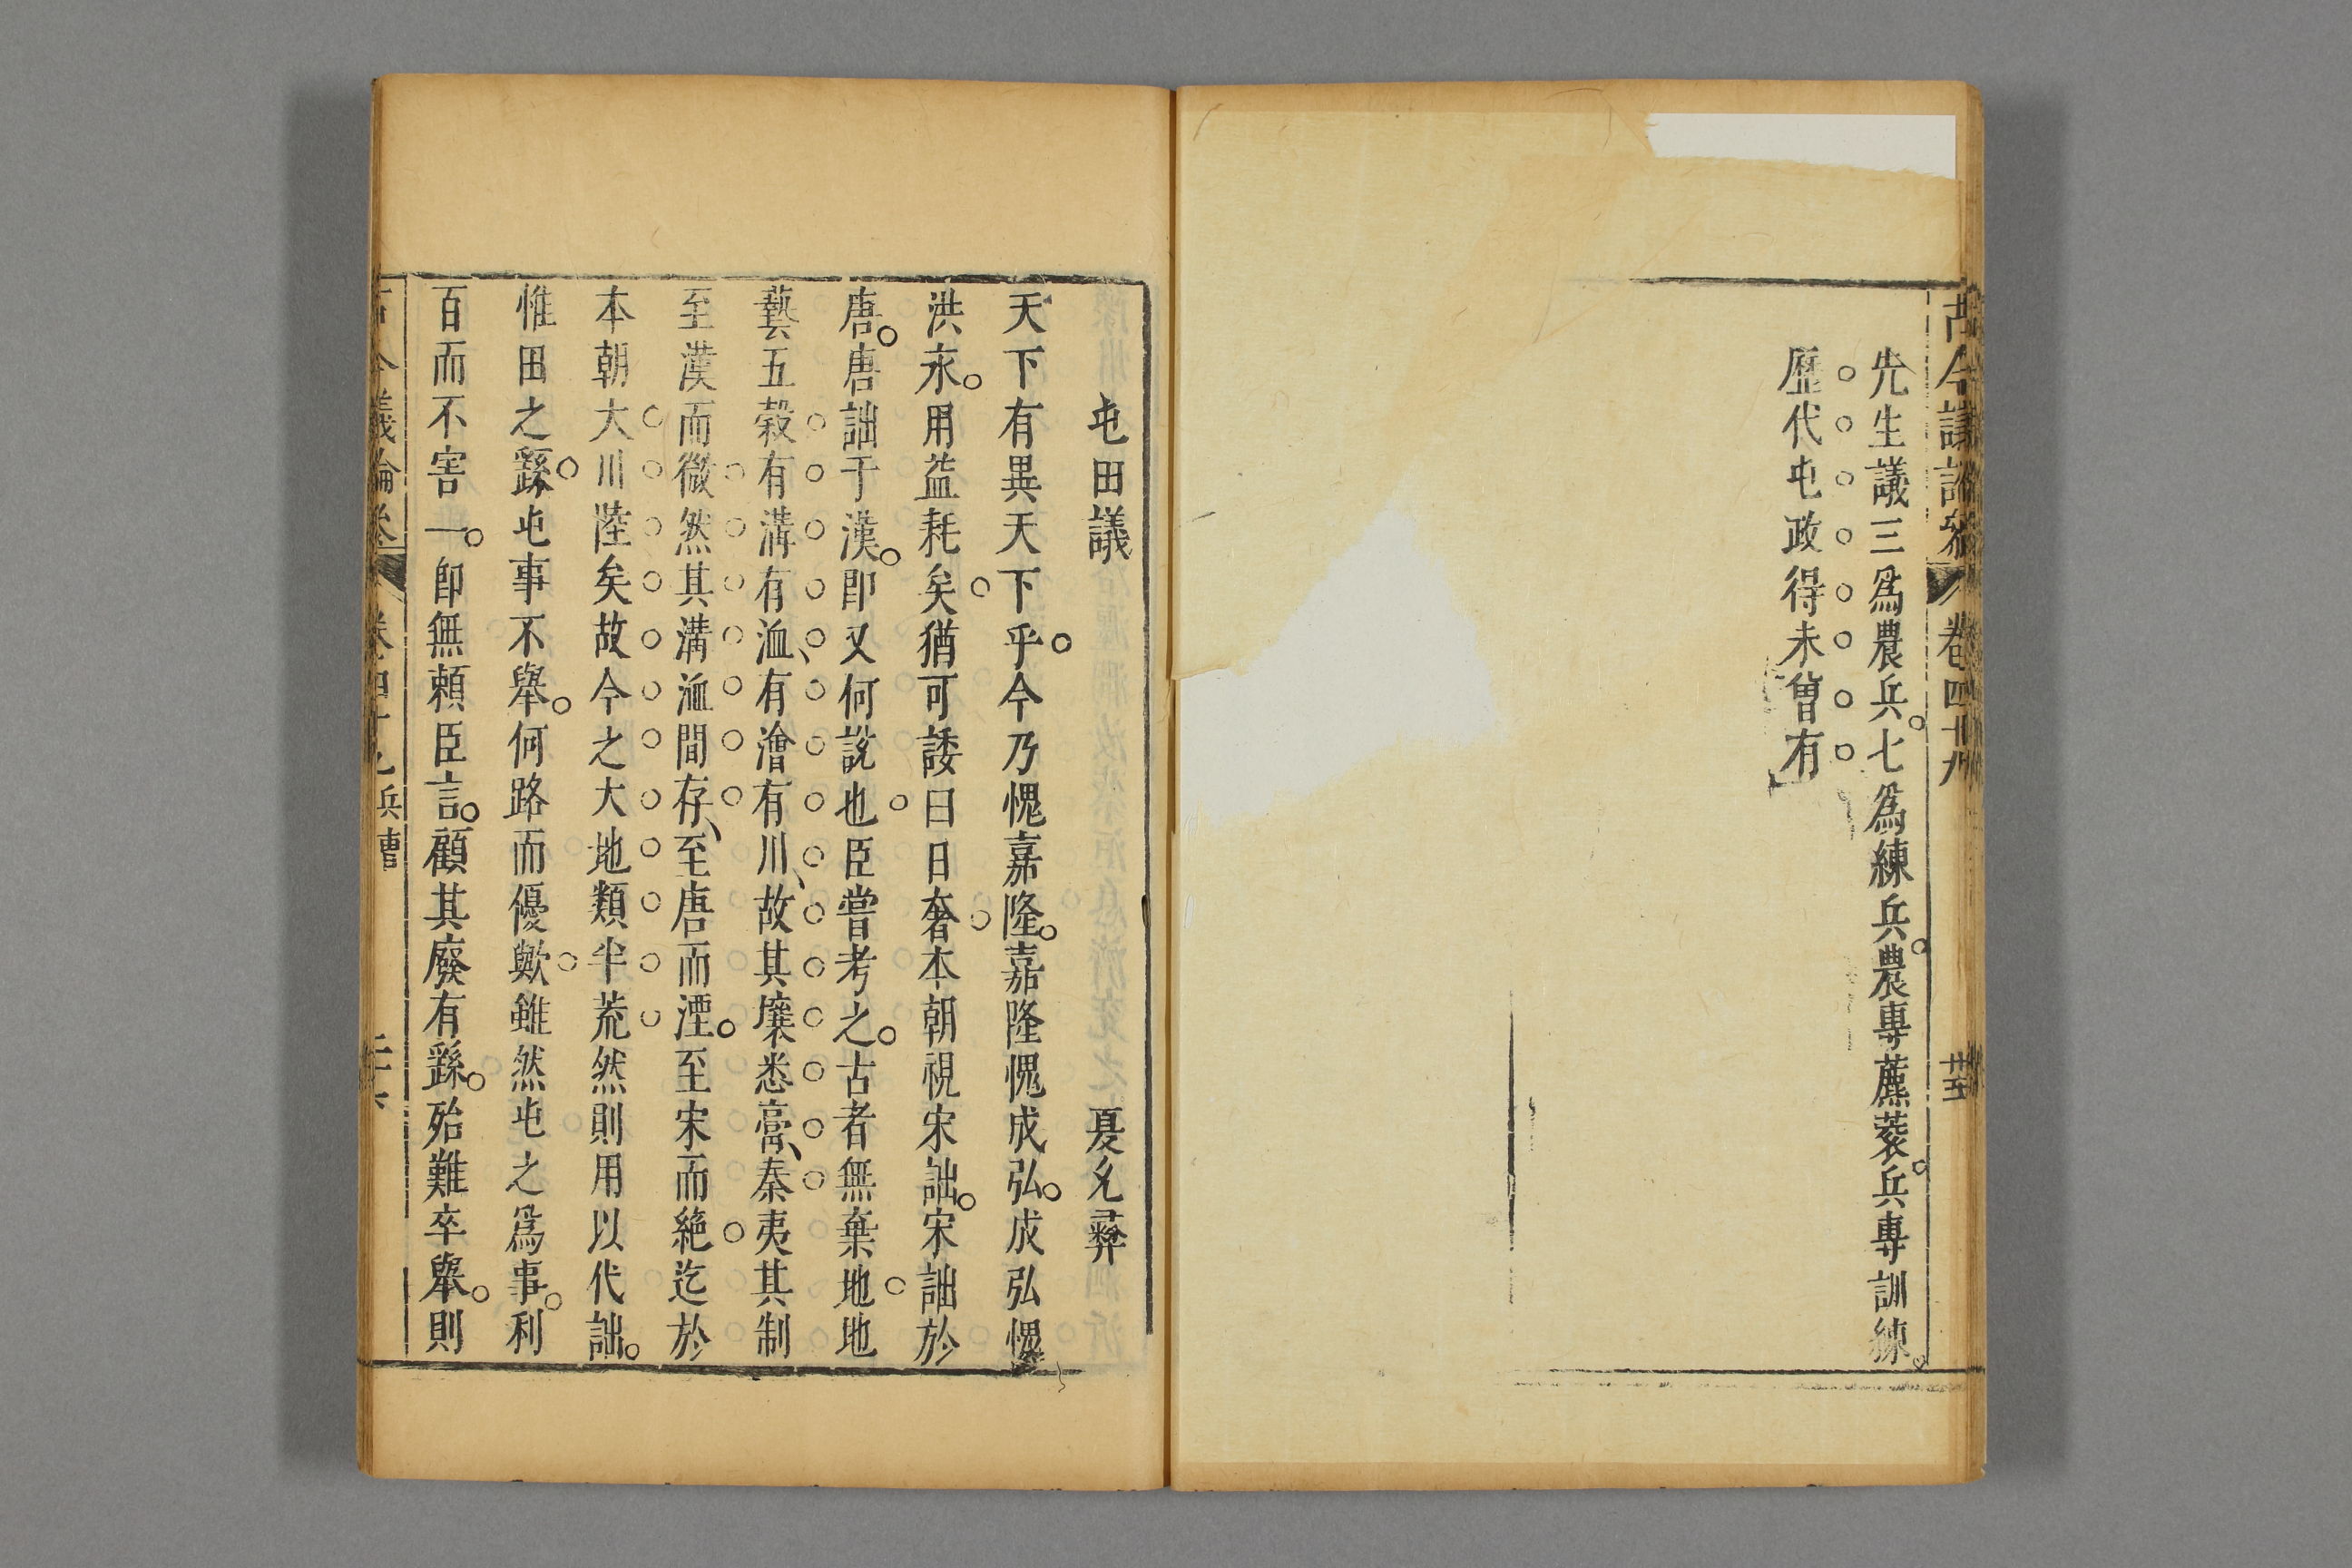 古今議論參 卷四十九 廿五
先生議三爲農兵七爲練兵農專藨蓘兵專訓練
歷代屯政得未曾有
屯田議 夏允彝
天下有異天下乎今乃愧嘉隆嘉隆愧成弘成弘愧
洪永用益耗矣猶可諉曰日奢本朝視宋詘宋詘於
唐唐詘于漢卽又何說也臣嘗考之古者無棄地地
藝五穀有溝有洫有澮有川故其壤悉膏秦夷其制
至漢而微然其溝洫間存至唐而湮至宋而絶迄於
本朝大川陸矣故今之大地類半荒然則用以代詘
惟田之繇屯事不舉何路而優歟雖然屯之爲事利
百而不害一卽無頼臣言顧其廢有繇殆難卒舉則
古今議論參 卷四十九兵漕